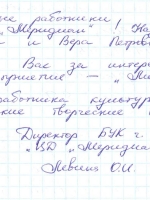 ые работники
„Меридиан“! На
а и Вера Петров
Вас за интере
приятие — „На
работника культур
кие творческие
Директор БУК г.
„ЦД „Меридиа
Левина О.И.